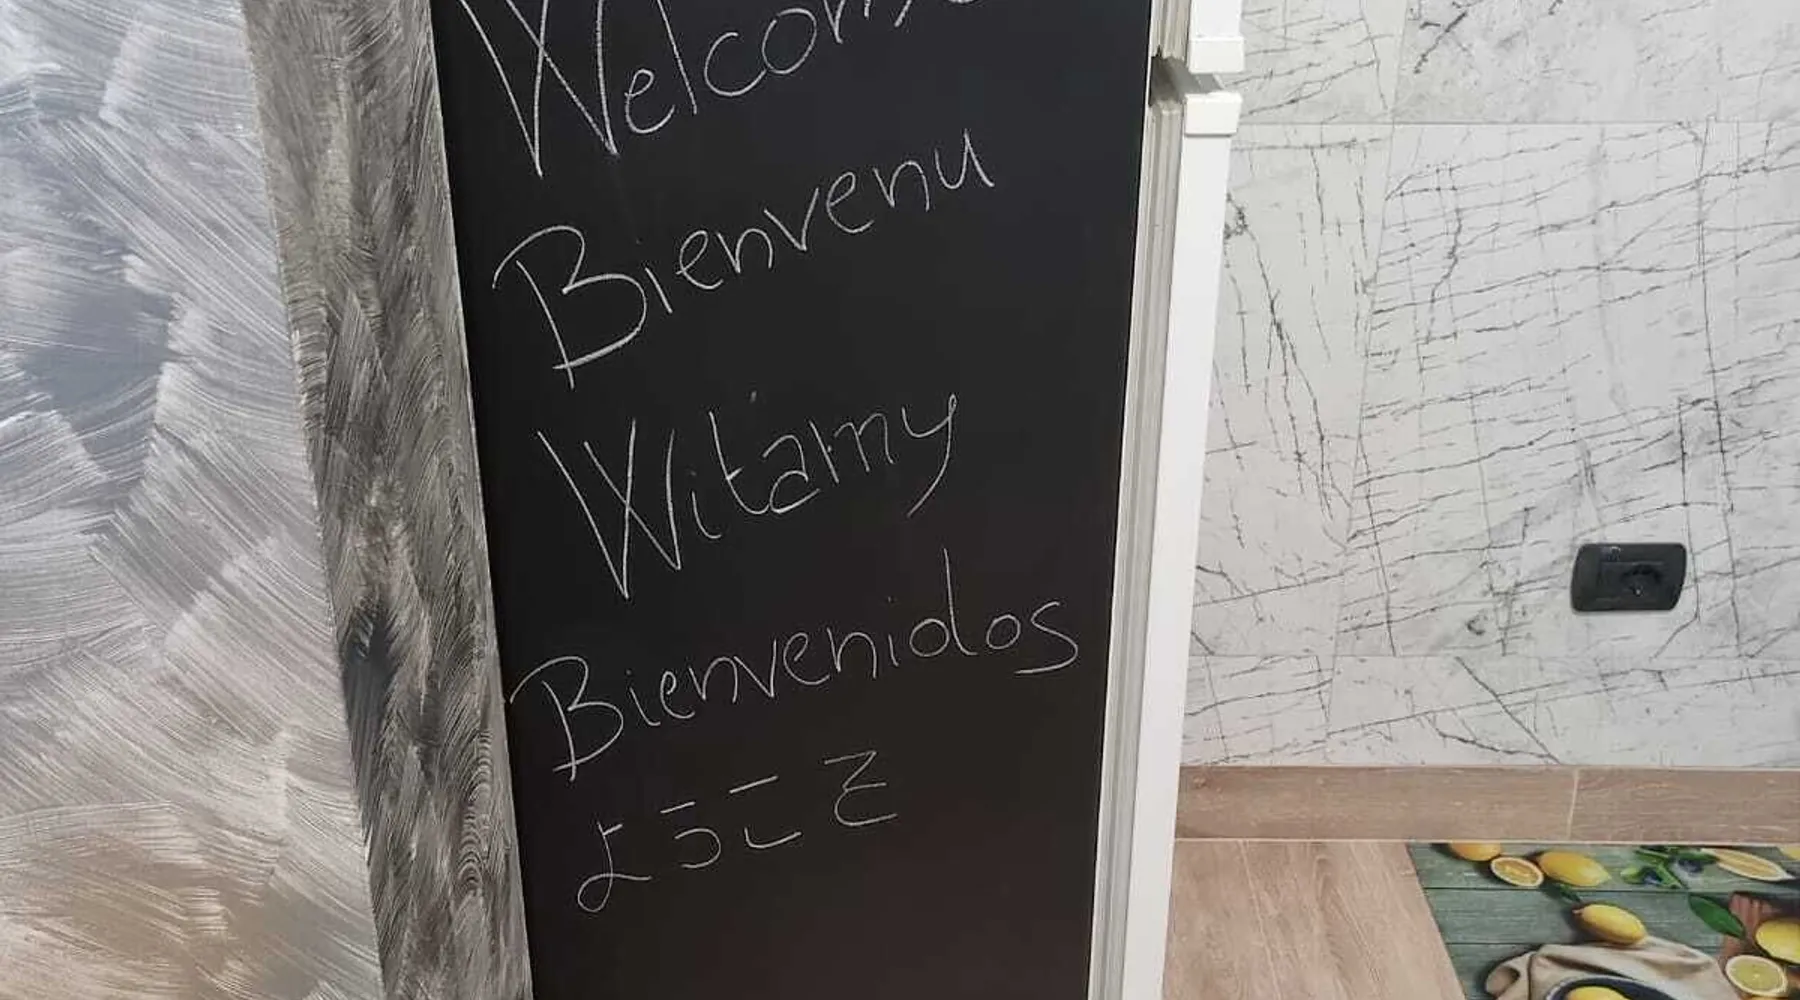 Welcome
Bienvenu
Witamy
Bienvenidos
ようこそ